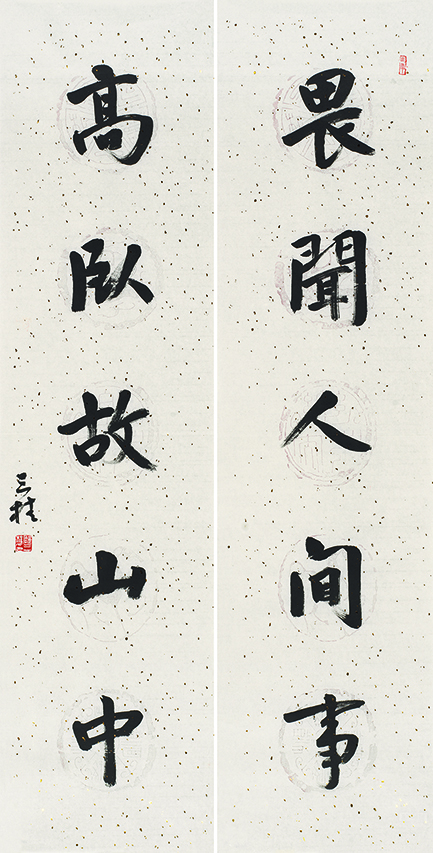 畏聞人间事
高臥故山中
三桂